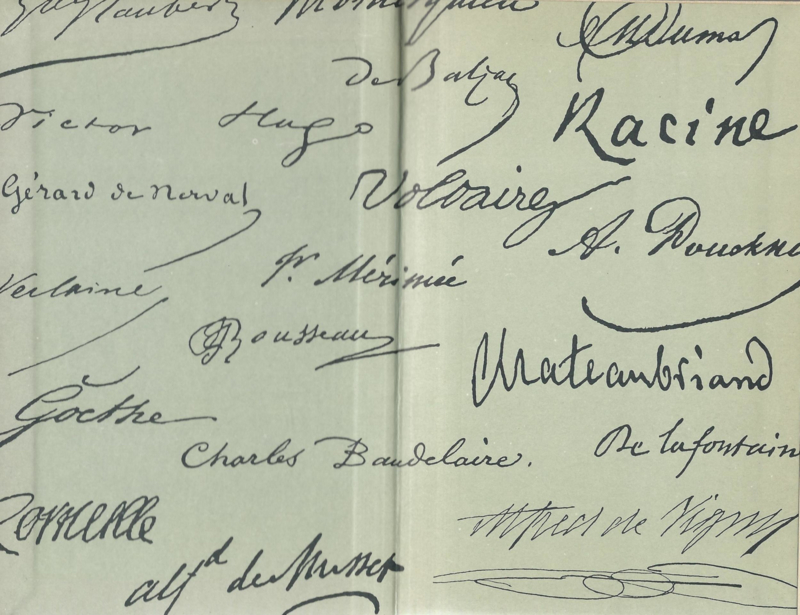 Gve Flaubert
Montesquieu
Dumas
De Balzac
Victor Hugo
Racine
Gérard de Nerval
Voltaire
A. Pouchki
Verlaine
Pr. Mérimée
JJ Rousseau
Chateaubriand
Göethe
Charles Baudelaire.
De la fontain
Corneille
Alfred de Vigny
alfd de Musset